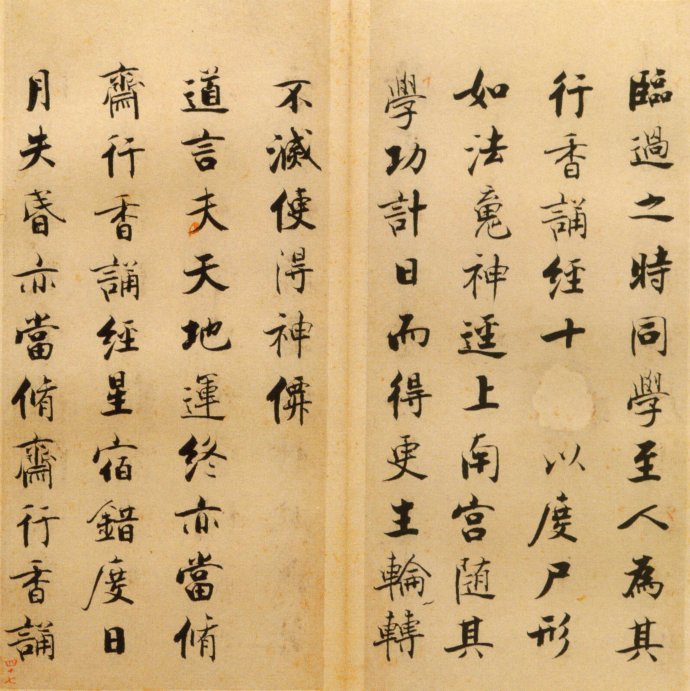 臨過之時同學至人為其
行香誦經十以度尸形
如法魂神逕上南宮隨其
學功計日而得更生輪轉
不滅便得神僊
道言夫天地運終亦當脩
齋行香誦經星宿錯度日
月失昬亦當脩齋行香誦
四十七